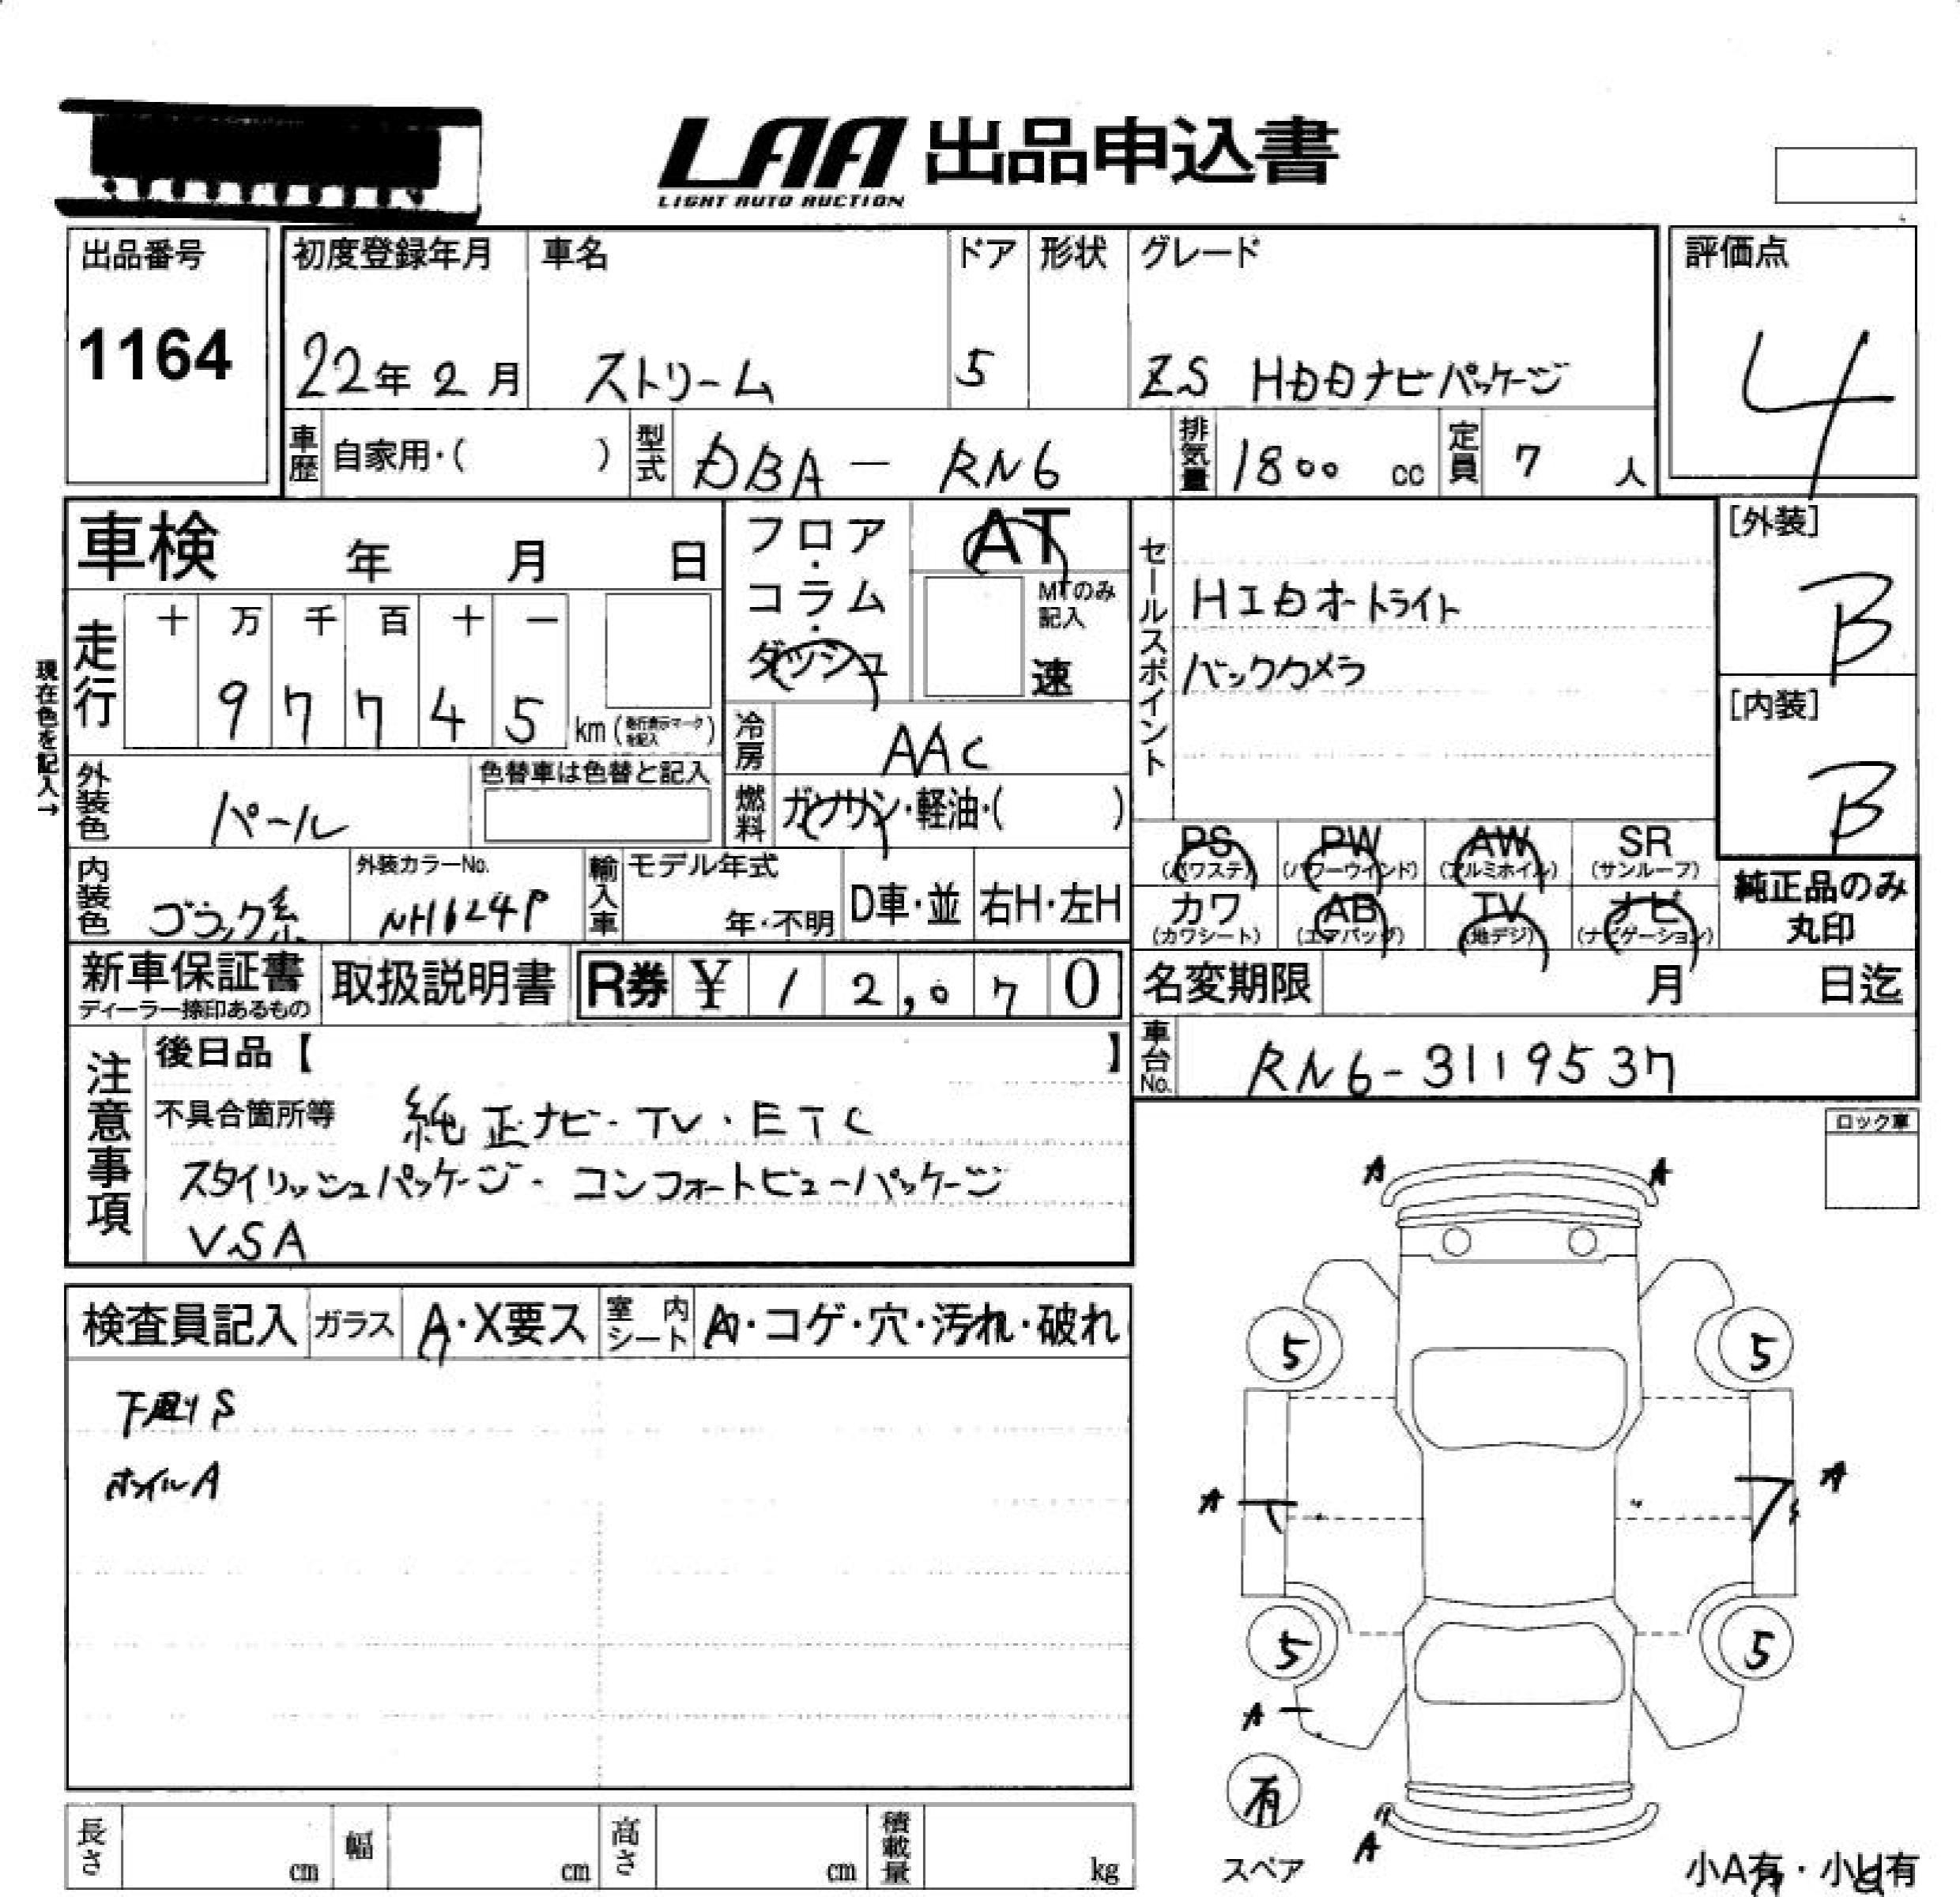 LAA 出品申込書
LIGHT AUTO AUCTION
出品番号 初度登録年月 車名 ドア 形状 グレード 評価点
1164 22年 2月 ストリーム 5 ZS HDDナビパッケージ 4
車歴 自家用・( ) 型式 DBA - RN6 排気量 1800 cc 定員 7 人
車検 年 月 日
フロア・コラム・ダッシュ
AT
MTのみ記入
速
セールスポイント
HIDオートライト
バックカメラ
[外装]
B
[内装]
B
現在色を記入→
走行 十 万 千 百 十 一
9 7 7 4 5 km (走行表示マークを記入)
冷房 AAC
外装色 パール 色替車は色替と記入
燃料 ガソリン・軽油・( )
PS (パワステ) PW (パワーウインド) AW (アルミホイル) SR (サンルーフ)
カワ (カワシート) AB (エアバッグ) TV (地デジ) ナビ (ナビゲーション)
純正品のみ
丸印
内装色 ブラック系 外装カラーNo. NH624P 輸入車 モデル年式 年・不明 D車・並 右H・左H
新車保証書 取扱説明書 R券 ¥ 12,070
ディーラー捺印あるもの
名変期限 月 日迄
車台No. RN6-3119537
注意事項
後日品【 】
不具合箇所等 純正ナビ・TV・ETC
スタイリッシュパッケージ・コンフォートビューパッケージ
VSA
ロック車
検査員記入 ガラス A・X要ス 室内シート A・コゲ・穴・汚れ・破れ
下廻りS
ホイルA
A A
5 5
A A
5 5
A
有
スペア
A
小A有・小U有
長さ cm 幅 cm 高さ cm 積載量 kg